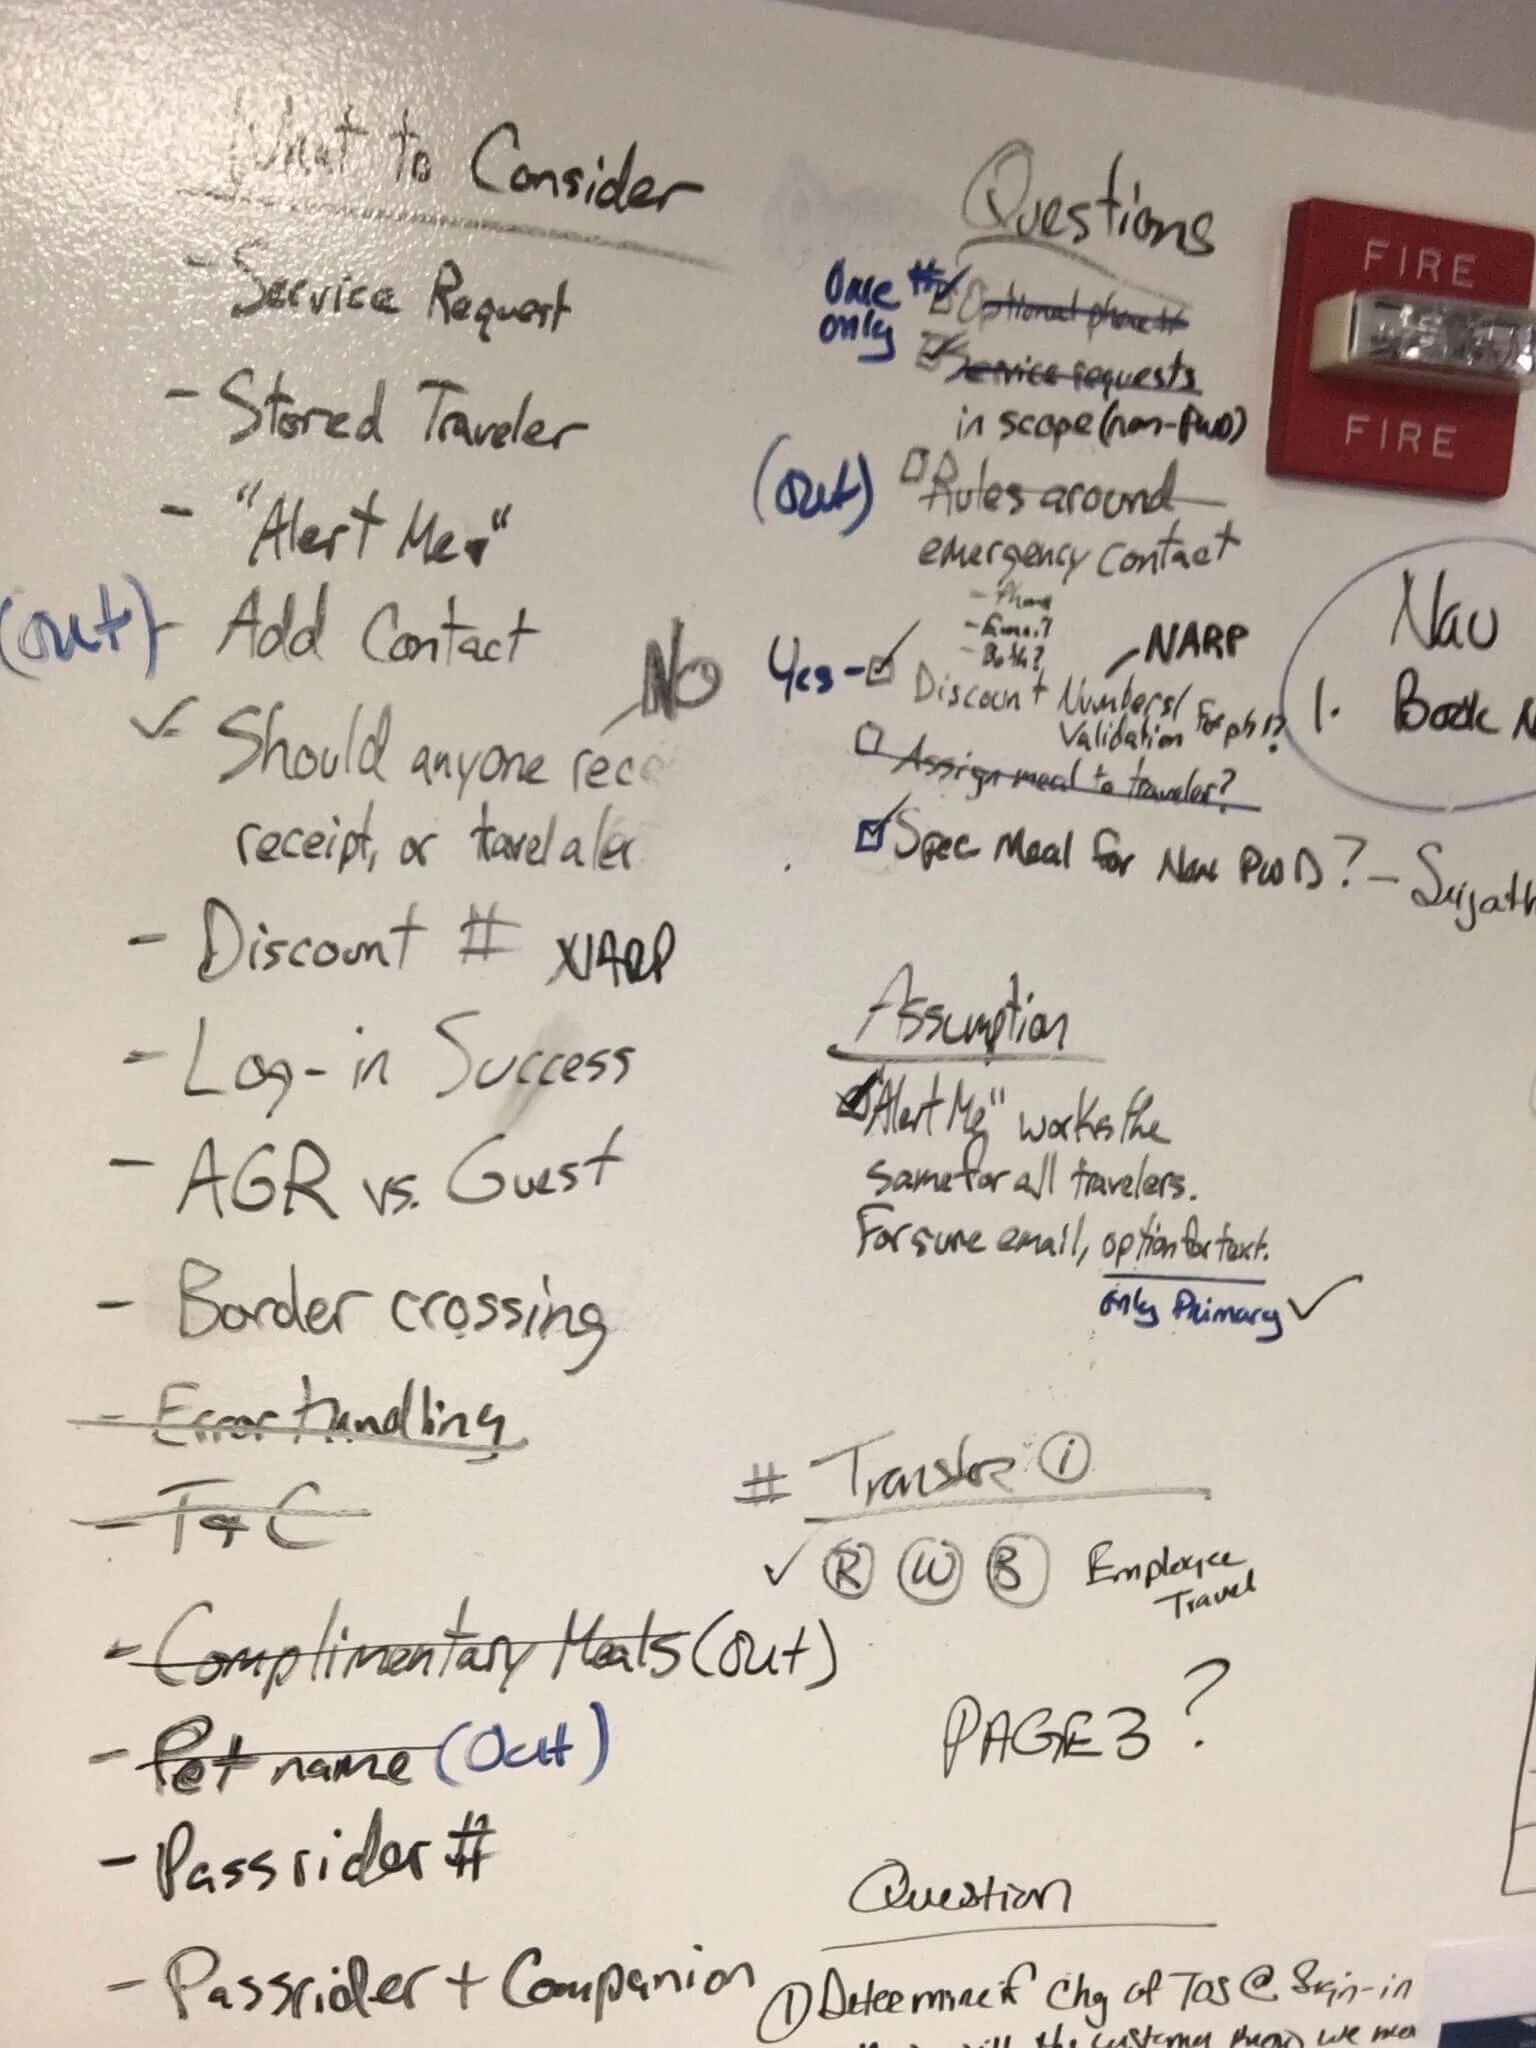 What to Consider
- Service Request
- Stored Traveler
- "Alert Me"
(out) - Add Contact
Should anyone
NO
receipt, or
- Discount # NARP
- Log-in Success
- AGR vs. Guest
- Border crossing
- Error handling
- T & C
- Complimentary Meals (out)
- Pet name (Out)
- Passrider #
- Passrider + Companion
Questions
One # only
Optional phone #
Service requests
in scope (non-PWD)
(out) Rules around
emergency contact
- Phone
- Email?
- Both?
Yes - Discount Numbers/
NARP
Validation
Assign meal to traveler?
Spec Meal for Non PWD? -
Assumption
"Alert Me" works the
same for all travelers.
For sure email, option for text.
only Primary
# i
R W B Employee
Travel
PAGE 3?
Question
① Determine if chg of TOS @
the customer know we
Nav
1. Book
FIRE
FIRE